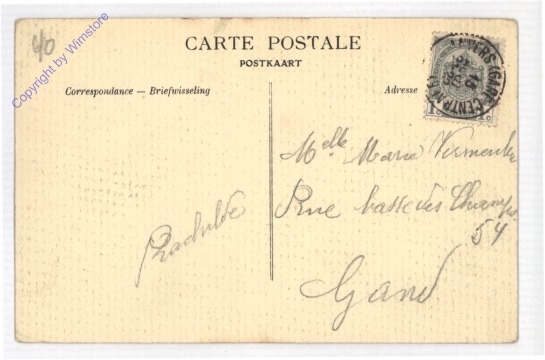 40
Copyright by Wimstore
CARTE POSTALE
POSTKAART
Correspondance — Briefwisseling
Adresse
ANVERS (GARE CENTRALE)
1c 1c
Melle Marie
Rue basse des Champs
54
Gand